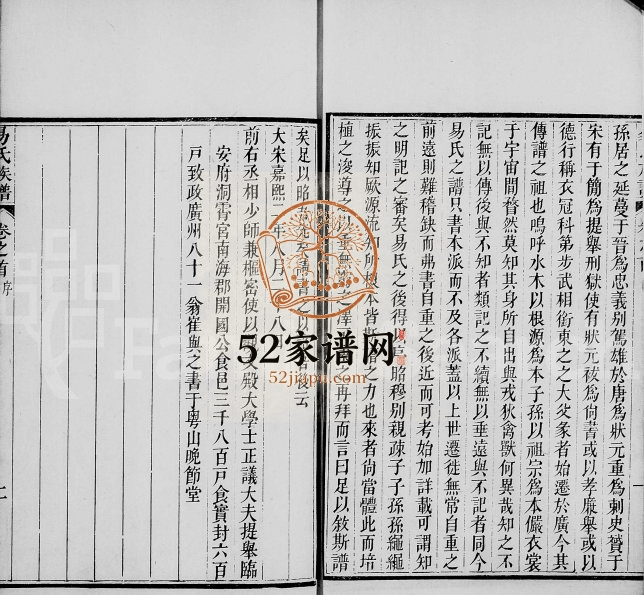 孫居之延蔓于晉爲忠義別駕雄於唐爲狀元重爲刺史贇于
宋有于簡爲提舉刑獄使有狀元祓爲尙書或以孝廉舉或以
德行稱衣冠科第步武相銜東之之大父象者始遷於廣今其
傳譜之祖也嗚呼水木以根源爲本子孫以祖宗爲本儼衣裳
于宇宙間瞀然莫知其身所自出與戎狄禽獸何異哉知之不
記無以傳後與不知者類記之不續無以垂遠與不記者同今
易氏之譜只書本派而不及各派蓋以上世遷徙無常自重之
前遠則難稽缺而弗書自重之後近而可考始加詳載可謂知
之明記之審矣易氏之後得以昭穆別親疎子子孫孫繩繩
振振知歐源本皆之力也來者尙當體此而培
植之浚導之以垂無之再拜而言曰足以敘斯譜
矣足以昭書之以後云
大宋嘉熙年八月八
前右丞相少師兼樞密使以殿大學士正議大夫提舉臨
安府洞霄宮南海郡開國公食邑三千八百戸食實封六百
戸致政廣州八十一翁崔與之書于粵山晚節堂
易氏族譜
卷之首
序
52家谱网
52jiapu.com